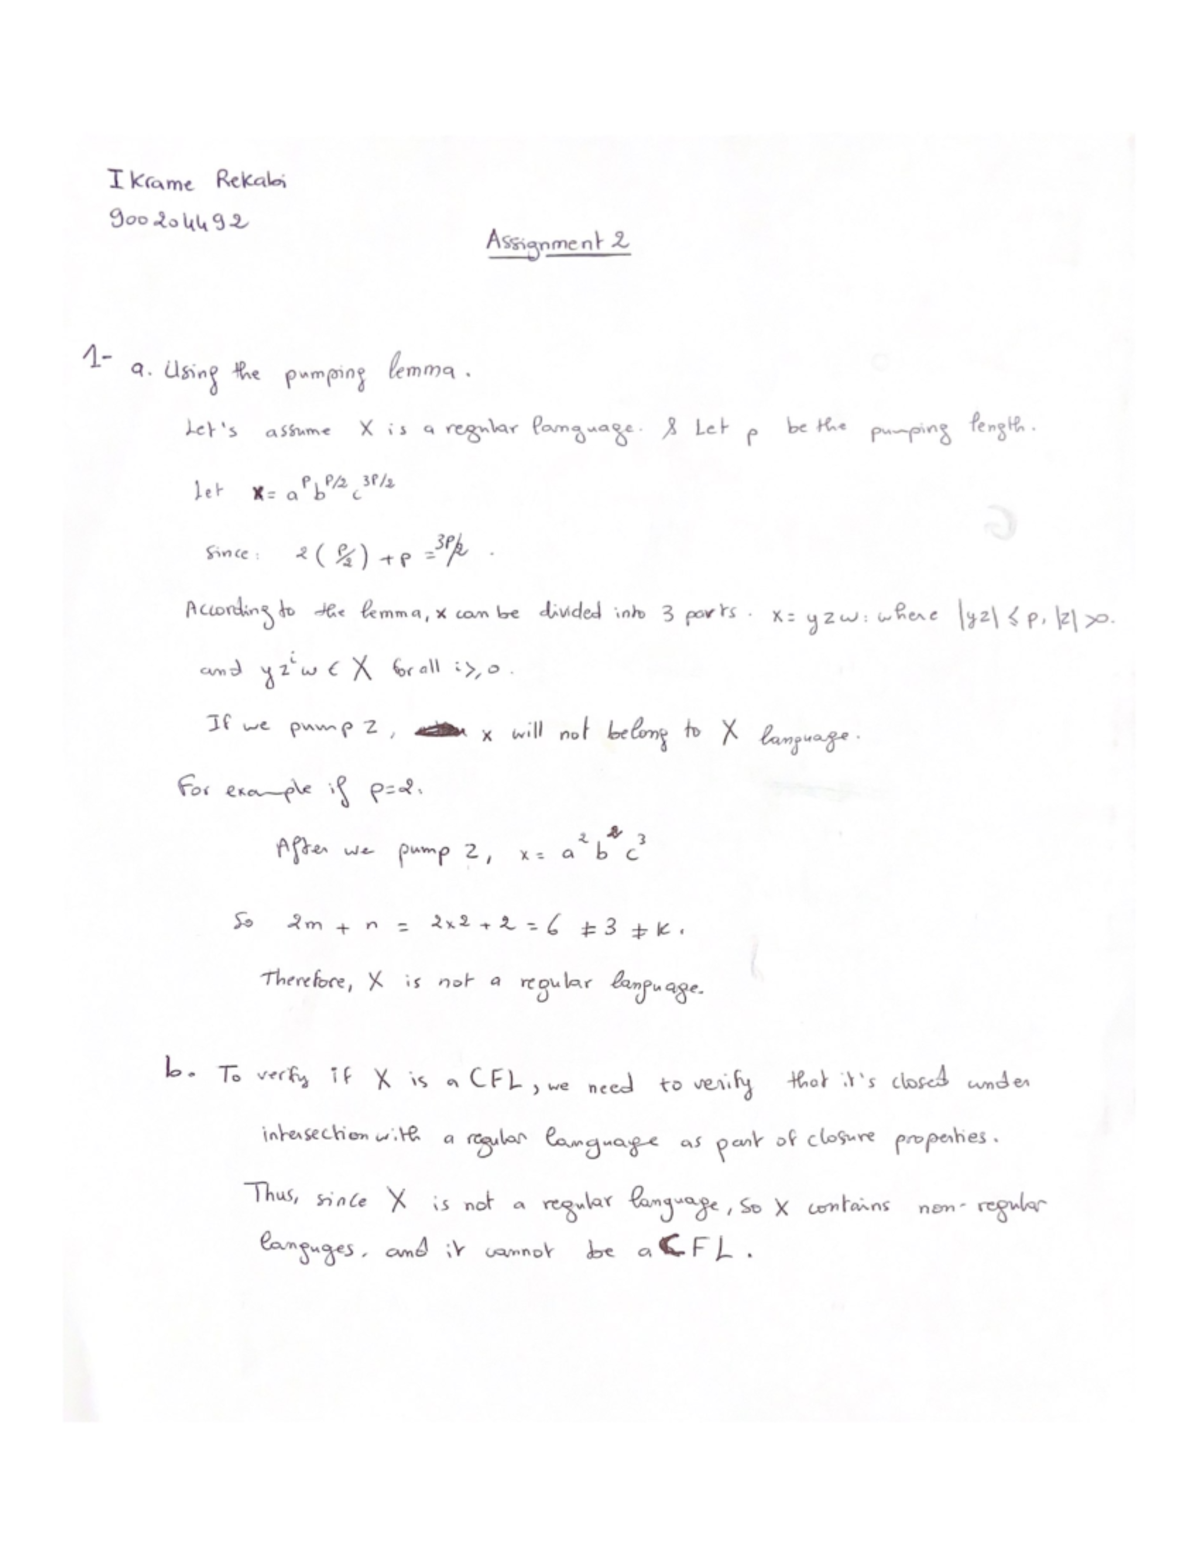 IKrame Rekabi
900204492
Assignment 2
1- a. Using the pumping lemma.
Let's assume X is a regular language. & Let p be the pumping length.
Let x = a^p b^p/2 c^3p/2
Since: 2(p/2) + p = 3p/2 .
According to the lemma, x can be divided into 3 parts. x = yzw: where |yz| ≤ p, |z| >0.
and yz^i w ∈ X for all i ≥ 0.
If we pump z, x will not belong to X language.
For example if p=2.
After we pump z, x = a^2 b^2 c^3
So 2m + n = 2x2 + 2 = 6 ≠ 3 ≠ k.
Therefore, X is not a regular language.
b. To verify if X is a CFL, we need to verify that it's closed under
intersection with a regular language as part of closure properties.
Thus, since X is not a regular language, so X contains non-regular
languges. and it cannot be a CFL.